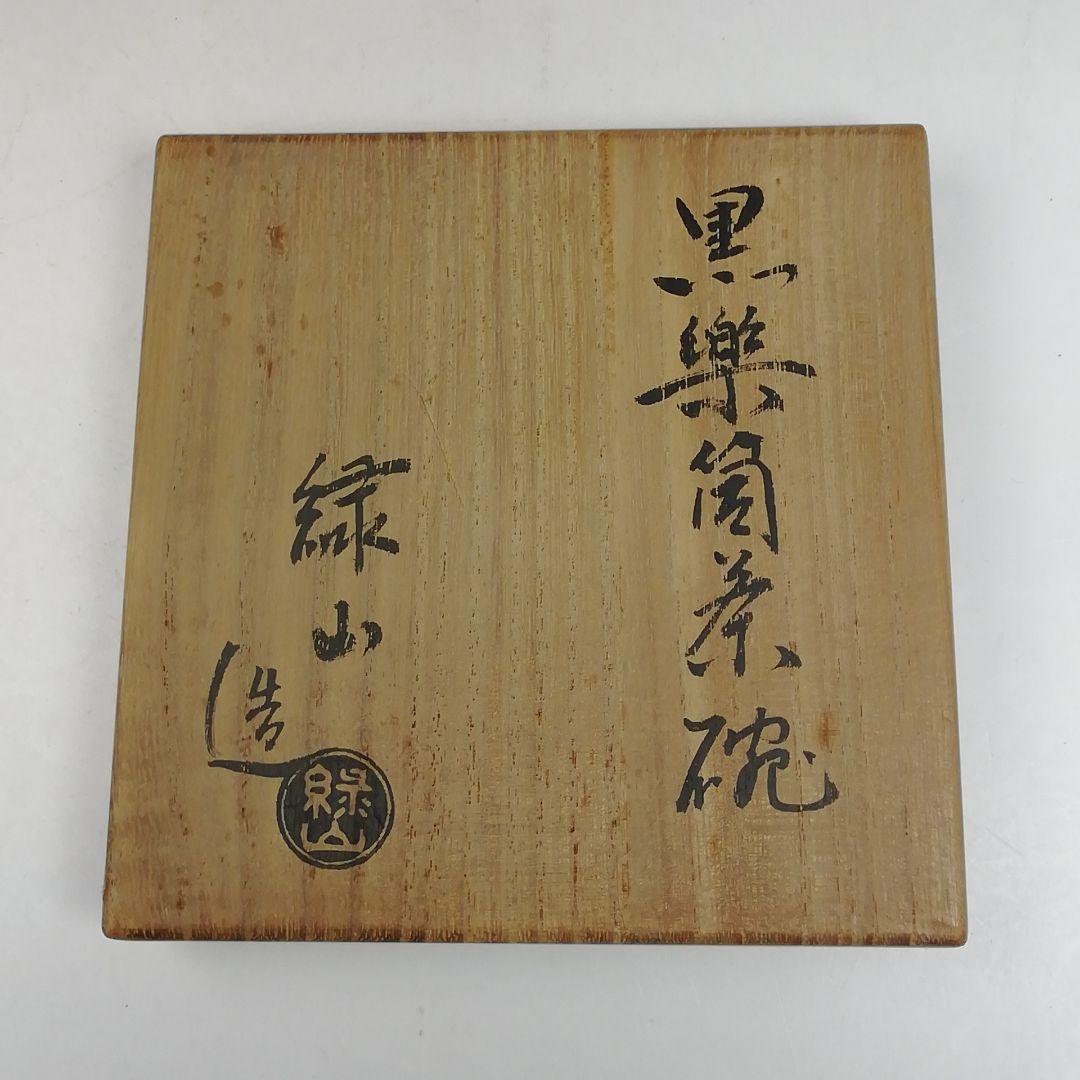 黒樂筒茶碗
緑山
造
緑山